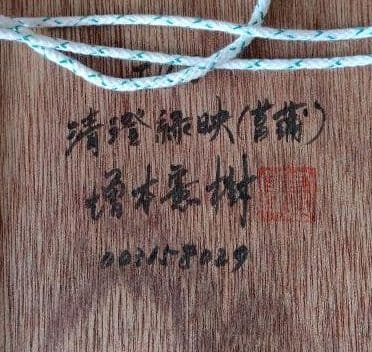 清澄緑映(菖蒲)
増本寛樹
003158029